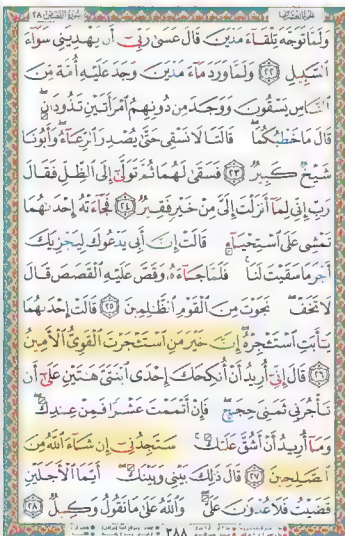 سورة القصص ٢٨
وَلَمَّا تَوَجَّهَ تِلْقَآءَ مَدْيَنَ قَالَ عَسَىٰ رَبِّىٓ أَن يَهْدِيَنِى سَوَآءَ
ٱلسَّبِيلِ ﴿٢٢﴾ وَلَمَّا وَرَدَ مَآءَ مَدْيَنَ وَجَدَ عَلَيْهِ أُمَّةً مِّنَ
ٱلنَّاسِ يَسْقُونَ وَوَجَدَ مِن دُونِهِمُ ٱمْرَأَتَيْنِ تَذُودَانِ
قَالَ مَا خَطْبُكُمَا قَالَتَا لَا نَسْقِى حَتَّىٰ يُصْدِرَ ٱلرِّعَآءُ وَأَبُونَا
شَيْخٌ كَبِيرٌ ﴿٢٣﴾ فَسَقَىٰ لَهُمَا ثُمَّ تَوَلَّىٰٓ إِلَى ٱلظِّلِّ فَقَالَ
رَبِّ إِنِّى لِمَآ أَنزَلْتَ إِلَىَّ مِنْ خَيْرٍ فَقِيرٌ ﴿٢٤﴾ فَجَآءَتْهُ إِحْدَىٰهُمَا
تَمْشِى عَلَى ٱسْتِحْيَآءٍ قَالَتْ إِنَّ أَبِى يَدْعُوكَ لِيَجْزِيَكَ
أَجْرَ مَا سَقَيْتَ لَنَا فَلَمَّا جَآءَهُۥ وَقَصَّ عَلَيْهِ ٱلْقَصَصَ قَالَ
لَا تَخَفْ نَجَوْتَ مِنَ ٱلْقَوْمِ ٱلظَّٰلِمِينَ ﴿٢٥﴾ قَالَتْ إِحْدَىٰهُمَا
يَٰٓأَبَتِ ٱسْتَـْٔجِرْهُ إِنَّ خَيْرَ مَنِ ٱسْتَـْٔجَرْتَ ٱلْقَوِىُّ ٱلْأَمِينُ
﴿٢٦﴾ قَالَ إِنِّىٓ أُرِيدُ أَنْ أُنكِحَكَ إِحْدَى ٱبْنَتَىَّ هَٰتَيْنِ عَلَىٰٓ أَن
تَأْجُرَنِى ثَمَٰنِىَ حِجَجٍ فَإِنْ أَتْمَمْتَ عَشْرًا فَمِنْ عِندِكَ
وَمَآ أُرِيدُ أَنْ أَشُقَّ عَلَيْكَ سَتَجِدُنِىٓ إِن شَآءَ ٱللَّهُ مِنَ
ٱلصَّٰلِحِينَ ﴿٢٧﴾ قَالَ ذَٰلِكَ بَيْنِى وَبَيْنَكَ أَيَّمَا ٱلْأَجَلَيْنِ
قَضَيْتُ فَلَا عُدْوَٰنَ عَلَىَّ وَٱللَّهُ عَلَىٰ مَا نَقُولُ وَكِيلٌ ﴿٢٨﴾
٣٨٨